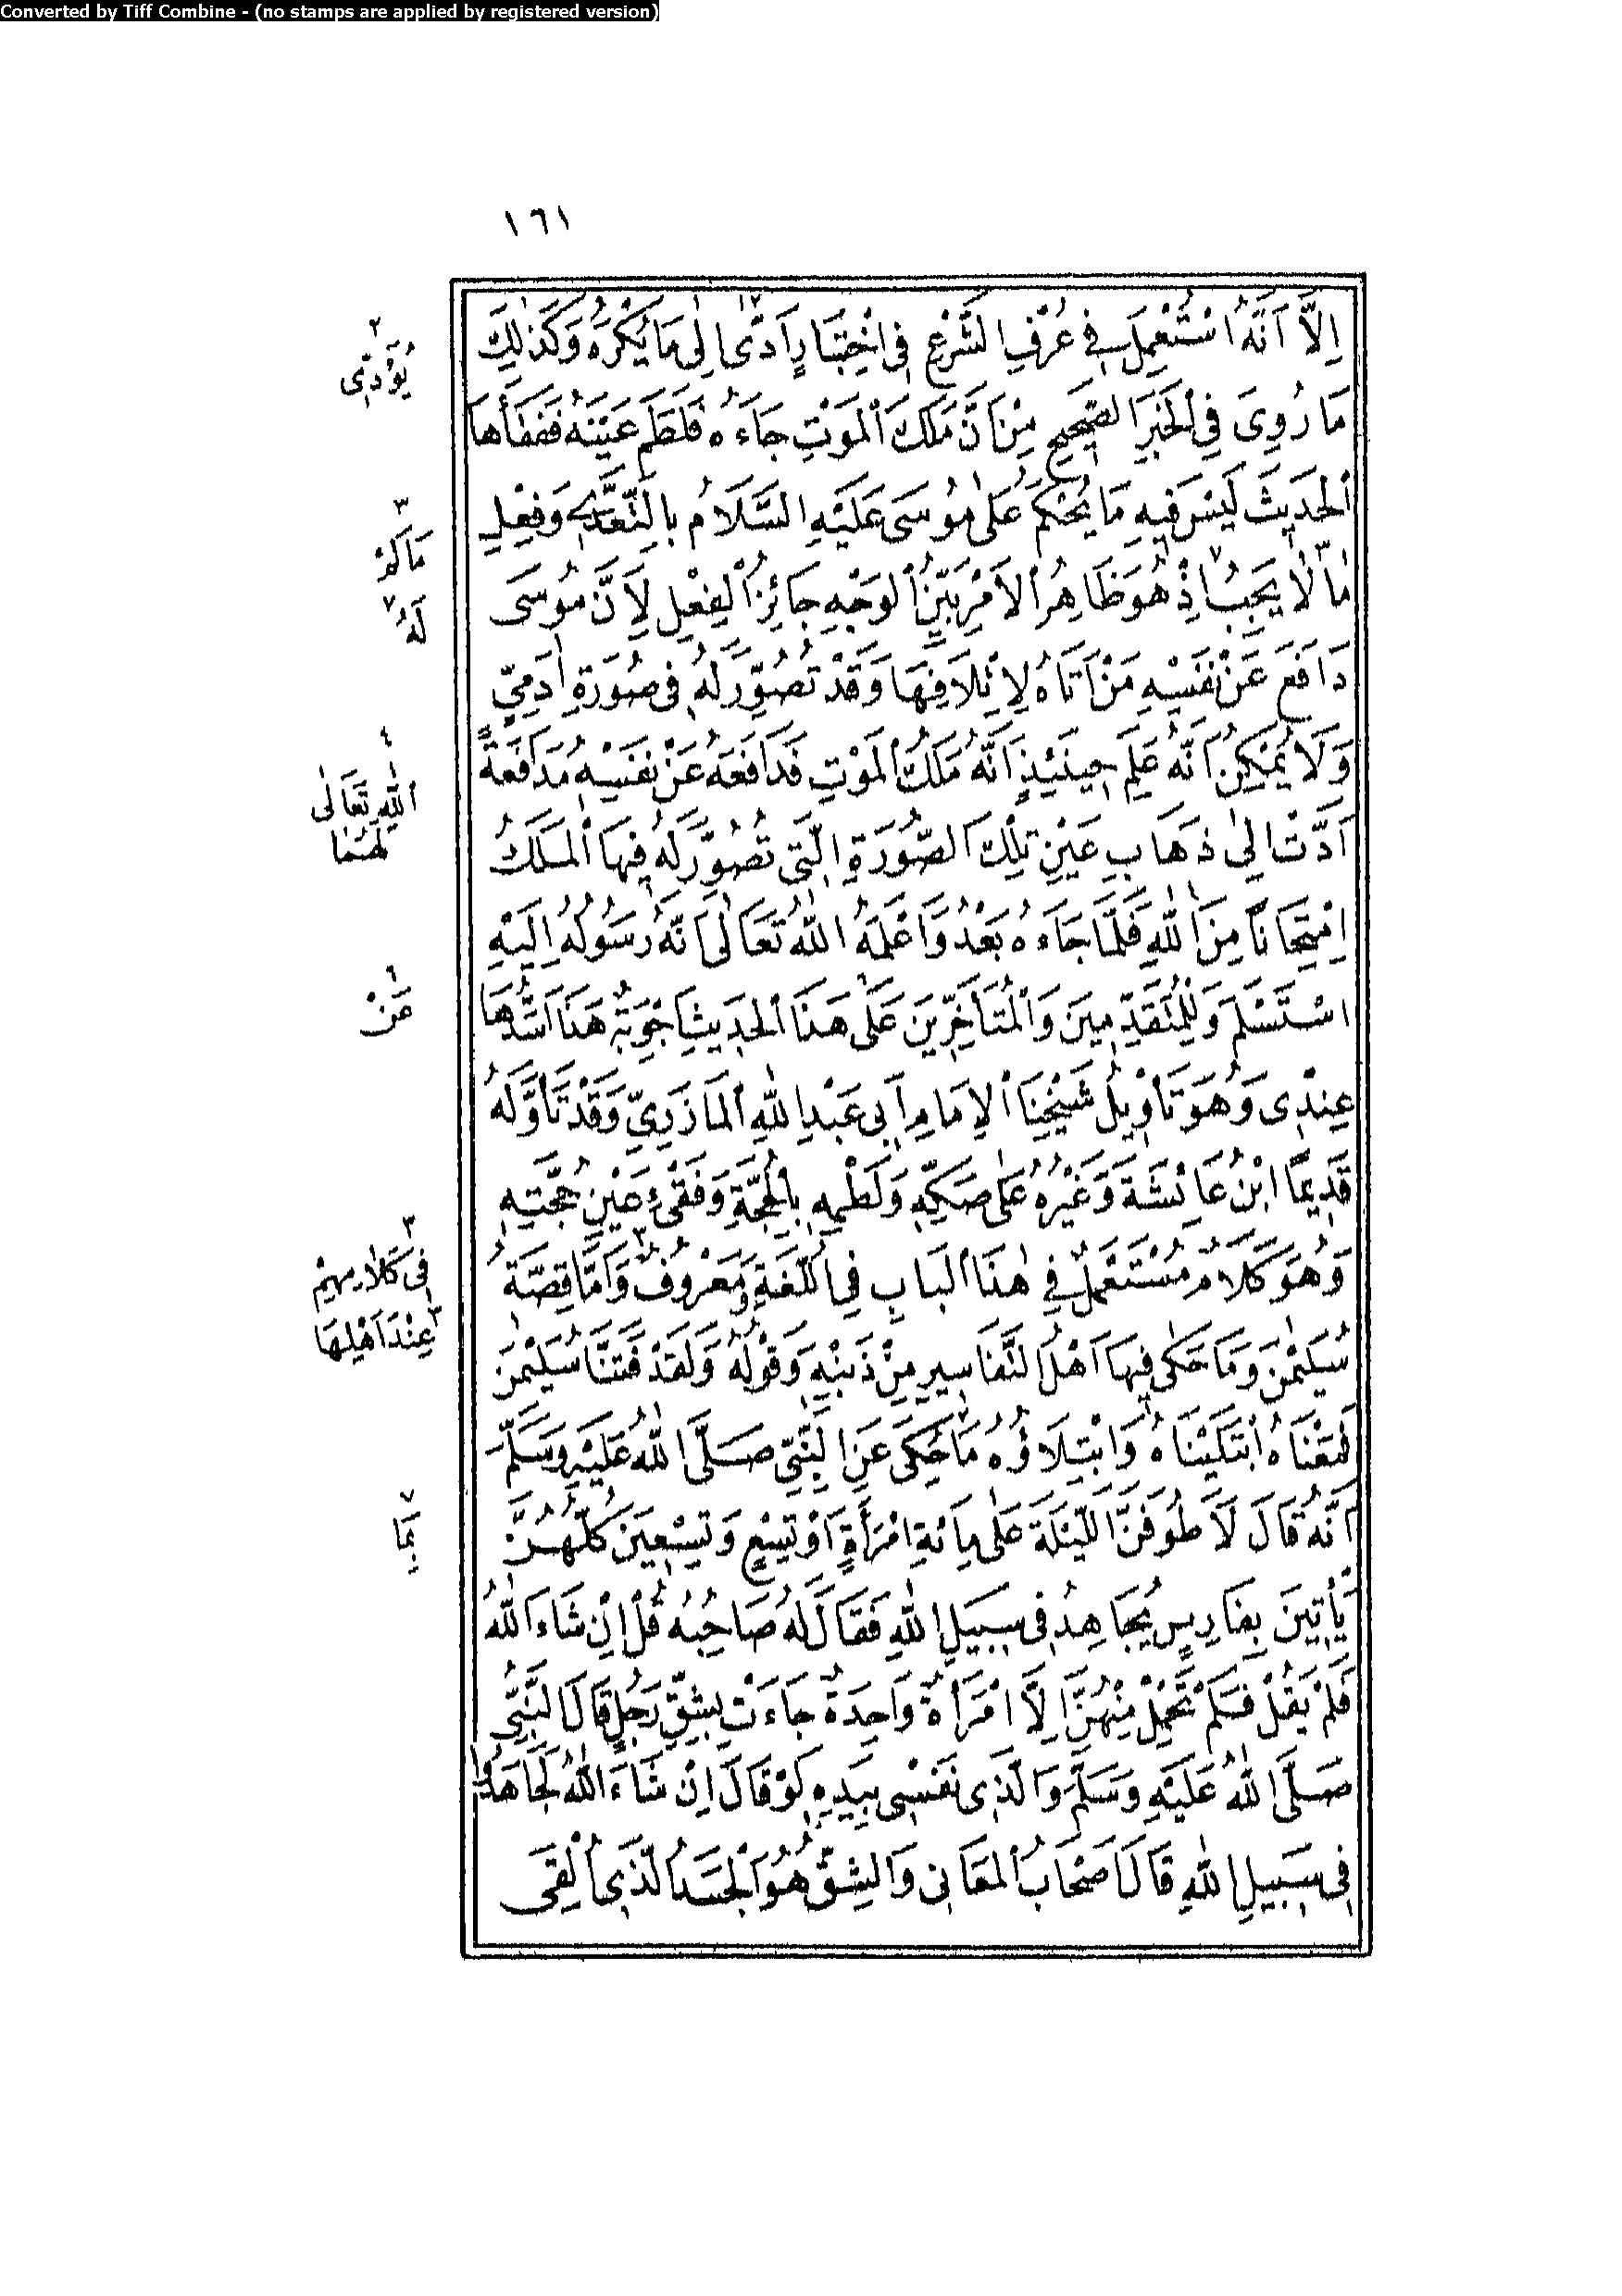 Converted by Tiff Combine - (no stamps are applied by registered version)
١٦١
اِلَّا اَنَّهُ اسْتُعْمِلَ فِى عُرْفِ الشَّرْعِ فِى اخْتِبَارٍ اَدّٰى اِلٰى مَا يُكْرَهُ وَكَذٰلِكَ
مَا رُوِىَ فِى الْخَبَرِ الصَّحِيحِ مِنْ اَنَّ مَلَكَ الْمَوْتِ جَاءَهُ فَلَطَمَ عَيْنَهُ فَفَقَأَهَا
الْحَدِيثَ لَيْسَ فِيهِ مَا يُحْكَمُ عَلٰى مُوسَى عَلَيْهِ السَّلَامُ بِالتَّعَدِّى وَفِعْلِ
مَا لَا يَجِبُ اِذْ هُوَ ظَاهِرُ الْاَمْرِ بَيِّنُ الْوَجْهِ جَائِزُ الْفِعْلِ لِاَنَّ مُوسَى
دَافَعَ عَنْ نَفْسِهِ مَنْ اَتَاهُ لِاِتْلَافِهَا وَقَدْ تُصُوِّرَ لَهُ فِى صُورَةِ اٰدَمِىٍّ
وَلَا يُمْكِنُ اَنَّهُ عَلِمَ حِينَئِذٍ اَنَّهُ مَلَكُ الْمَوْتِ فَدَافَعَهُ عَنْ نَفْسِهِ مُدَافَعَةً
اَدَّتْ اِلٰى ذَهَابِ عَيْنِ تِلْكَ الصُّورَةِ الَّتِى تُصُوِّرَ لَهُ فِيهَا الْمَلَكُ
اِمْتِحَانًا مِنَ اللّٰهِ فَلَمَّا جَاءَهُ بَعْدُ وَاَعْلَمَهُ اللّٰهُ تَعَالٰى اَنَّهُ رَسُولُهُ اِلَيْهِ
اسْتَسْلَمَ وَلِلْمُتَقَدِّمِينَ وَالْمُتَأَخِّرِينَ عَلٰى هَذَا الْحَدِيثِ اَجْوِبَةٌ هَذَا اَسَدُّهَا
عِنْدِى وَهُوَ تَأْوِيلُ شَيْخِنَا الْاِمَامِ اَبِى عَبْدِ اللّٰهِ الْمَازَرِىِّ وَقَدْ تَأَوَّلَهُ
قَدِيمًا ابْنُ عَائِشَةَ وَغَيْرُهُ عَلٰى صَكِّهِ وَلَطْمِهِ بِالْحُجَّةِ وَفَقْئِ عَيْنِ حُجَّتِهِ
وَهُوَ كَلَامٌ مُسْتَعْمَلٌ فِى هٰذَا الْبَابِ فِى اللُّغَةِ وَمَعْرُوفٌ وَاَمَّا قِصَّةُ
سُلَيْمٰنَ وَمَا حَكٰى فِيهَا اَهْلُ التَّفَاسِيرِ مِنْ ذَنْبِهِ وَقَوْلُهُ وَلَقَدْ فَتَنَّا سُلَيْمٰنَ
فَمَعْنَاهُ ابْتَلَيْنَاهُ وَابْتِلَاؤُهُ مَا حُكِىَ عَنِ النَّبِىِّ صَلَّى اللّٰهُ عَلَيْهِ وَسَلَّمَ
اَنَّهُ قَالَ لَاَطُوفَنَّ اللَّيْلَةَ عَلٰى مِائَةِ امْرَأَةٍ اَوْ تِسْعٍ وَتِسْعِينَ كُلُّهُنَّ
يَأْتِينَ بِفَارِسٍ يُجَاهِدُ فِى سَبِيلِ اللّٰهِ فَقَالَ لَهُ صَاحِبُهُ قُلْ اِنْ شَاءَ اللّٰهُ
فَلَمْ يَقُلْ فَلَمْ تَحْمِلْ مِنْهُنَّ اِلَّا امْرَأَةٌ وَاحِدَةٌ جَاءَتْ بِشِقِّ رَجُلٍ قَالَ النَّبِىُّ
صَلَّى اللّٰهُ عَلَيْهِ وَسَلَّمَ وَالَّذِى نَفْسِى بِيَدِهِ لَوْ قَالَ اِنْ شَاءَ اللّٰهُ لَجَاهَدُوا
فِى سَبِيلِ اللّٰهِ قَالَ اَصْحَابُ الْمَعَانِى وَالشِّقُّ هُوَ الْجَسَدُ الَّذِى اُلْقِىَ
٢
يُؤَدِّى
٣
مَا لَمْ
٧
لَهُ
٤
اللّٰهِ تَعَالٰى
لَهُمَا
٦
عَنْ
٣
فِى كَلَامِهِمْ
٣
عِنْدَ اَهْلِهَا
٧
بِمَا